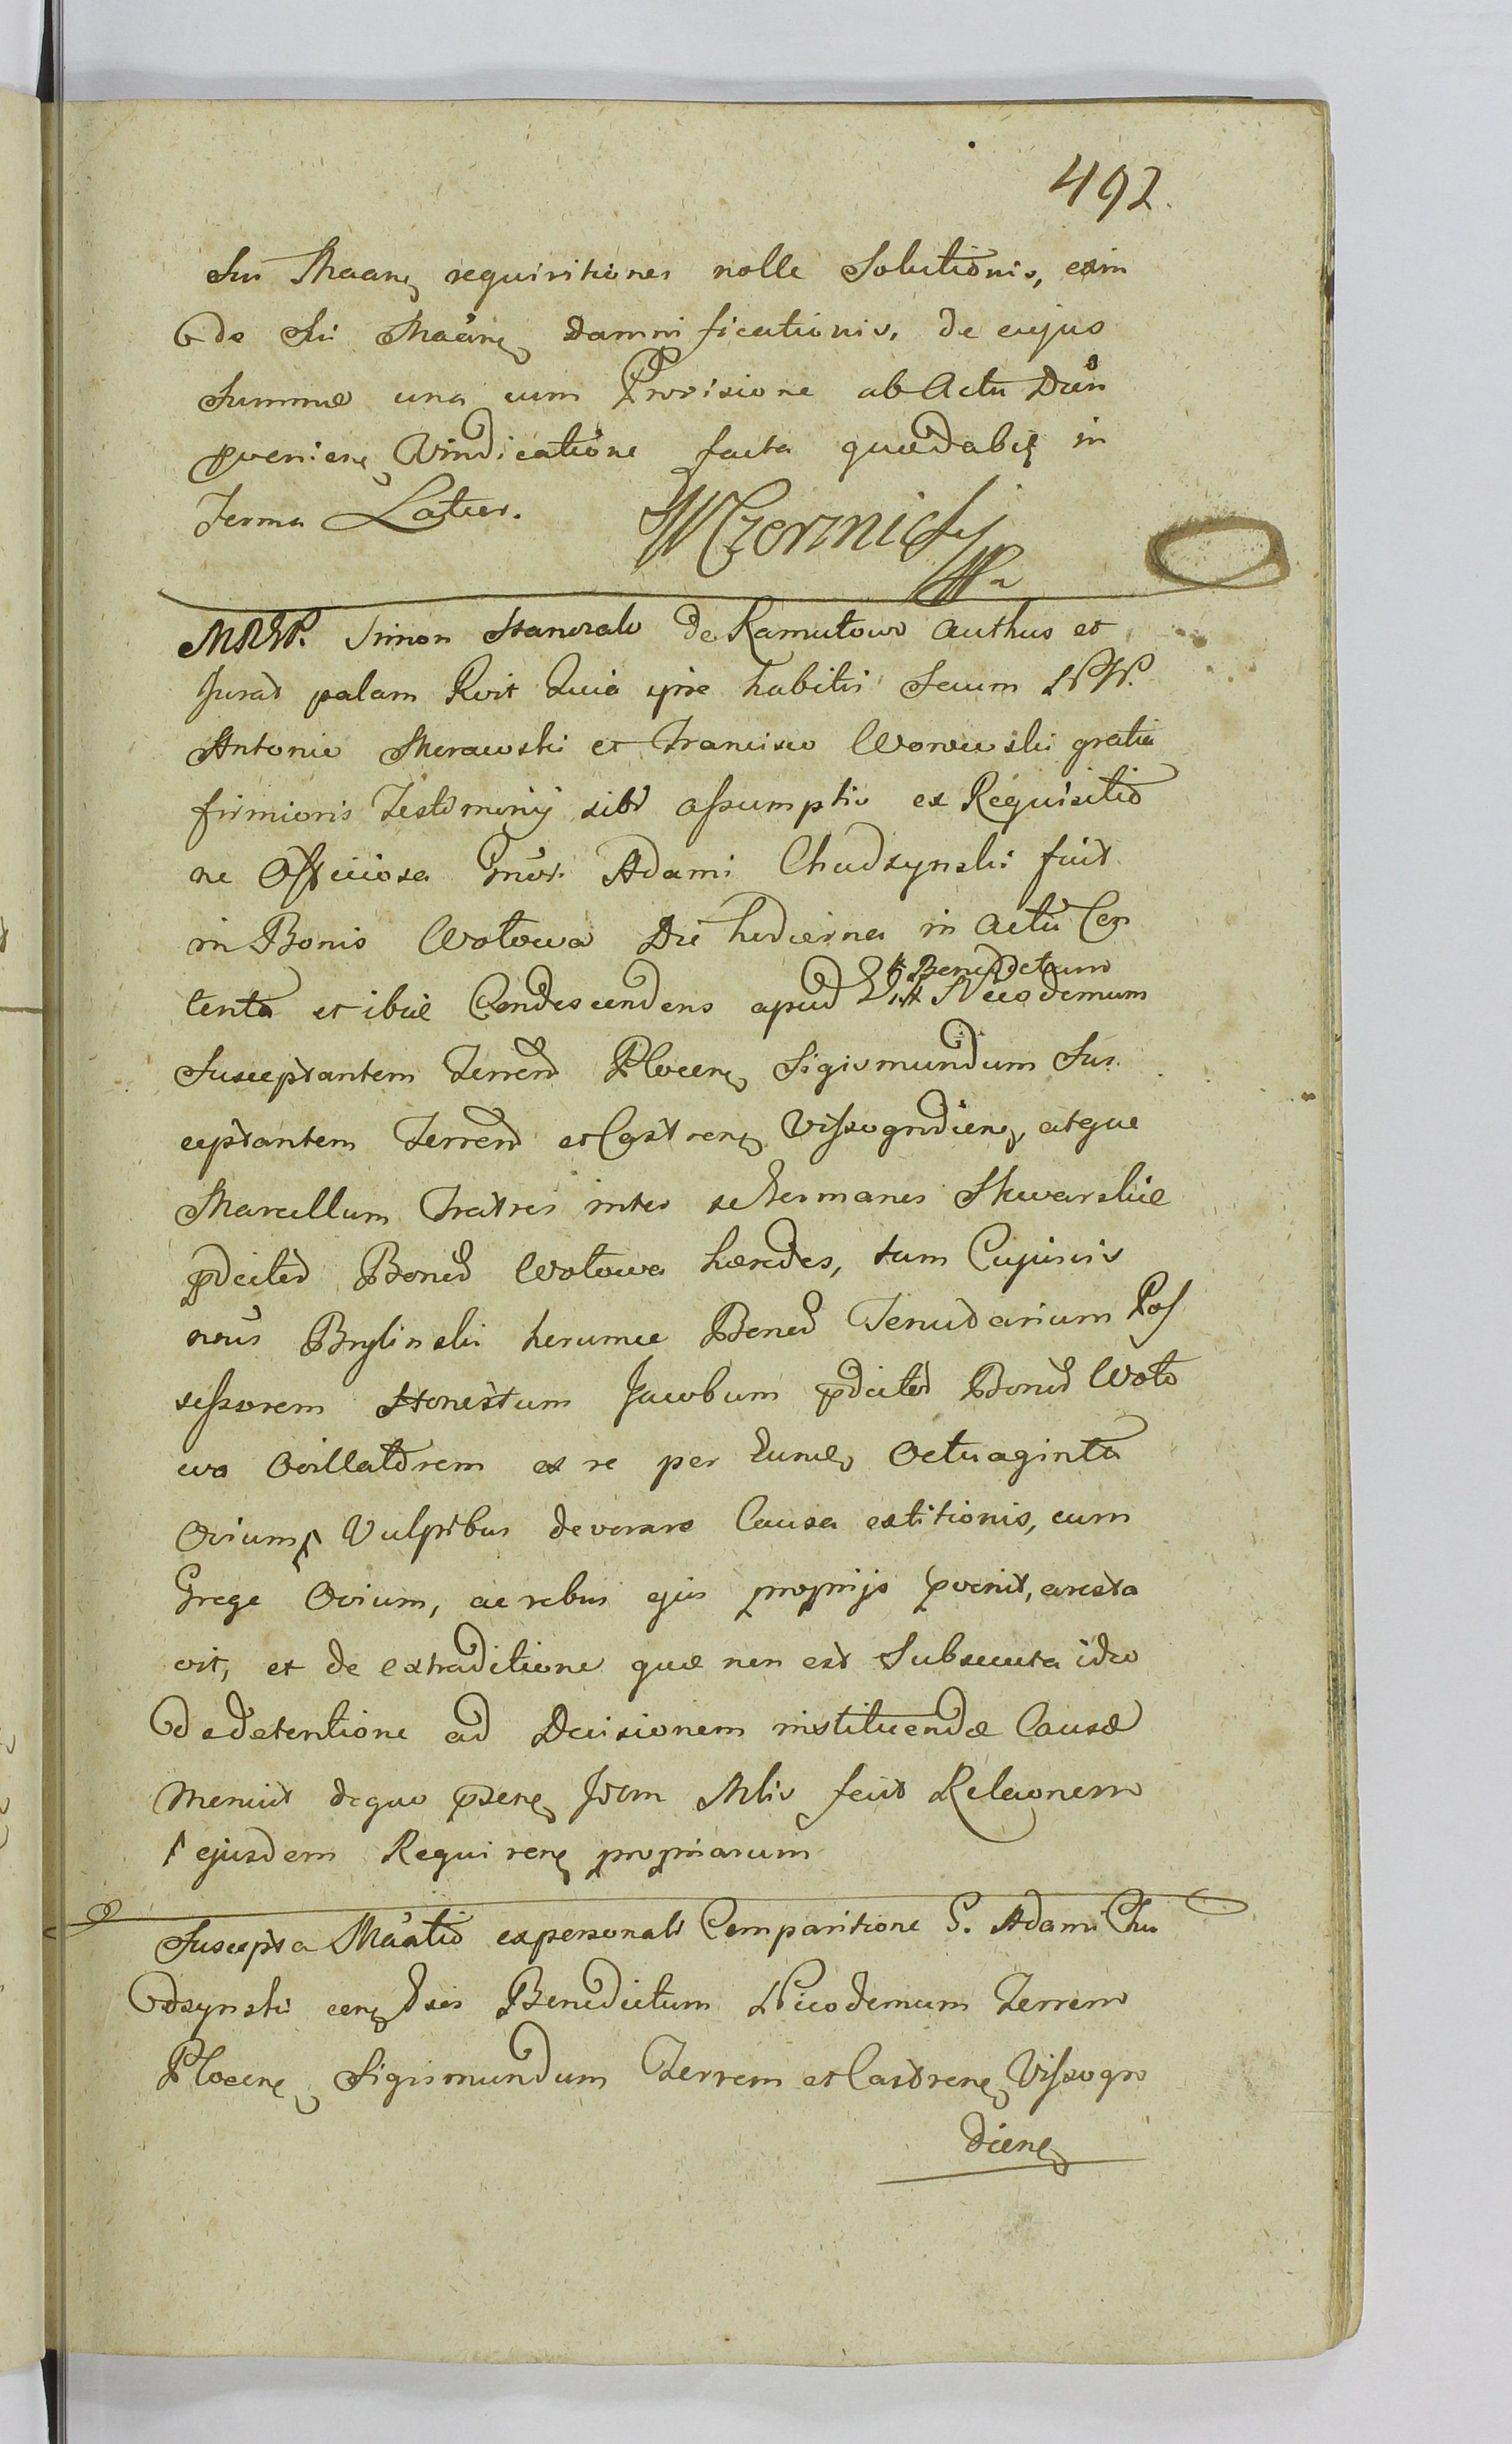 492.
Sui Maanq requisitiones nolle Solutionis, exin
de Sui Maanq Damnificationis, de cujus
Summae una cum Provisione ab Actu Dun
pvenienq Vindicatione facta quaedabiq in
Termo Latius.
WCzermicky
MREP. Simon Stancrale de Ramutowo Authus et
Jurat palam Rvit Quia ipse habitis Secum NN.
Antonio Morawski et Francisco Worowski gratia
firmioris Testimonij sibi assumptis ex Requisitio
ne Officiosa Gnosi Adami Chudzynski fuit
in Bonis Wotowa Die hodierna in Actu Con
tenta et ibiq Condescendens apud
Benedictum
Nicodemum
Susceptantem Terrend Plocenq Sigismundum Sus
ceptantem Terrend et Castrenq Vissogrodienq, atque
Marcellum Fratres inter se Germanos Skwarskie
pdicted Bonod Wotowa haeredes, tum Cujusvis
novi Brylinski horumce Bonod Tenudarium Pos
sessorem Honestum Jacobum pdicted Bonod Woto
wa Ovillatorem ex re per Eumq Octuaginta
Ovium Vulpibus devorare Causa extitionis, cum
Grege Ovium, ac rebus ejus proprijs pvenit, aresta
vit, et de extraditione quae non est Subsecuta ideo
de detentione ad Decisionem instituendae Causae
Monuit de quo psenq Idem Mlis fecit Relaonem
ejusdem Requirenq propriarum
Suscepta Maatio ex personali Comparitione G. Adami Chu
dzynski cenq Benedictum Nicodemum Terrem
Plocenq Sigismundum Terrem et Castrenq Vissogro
dienq